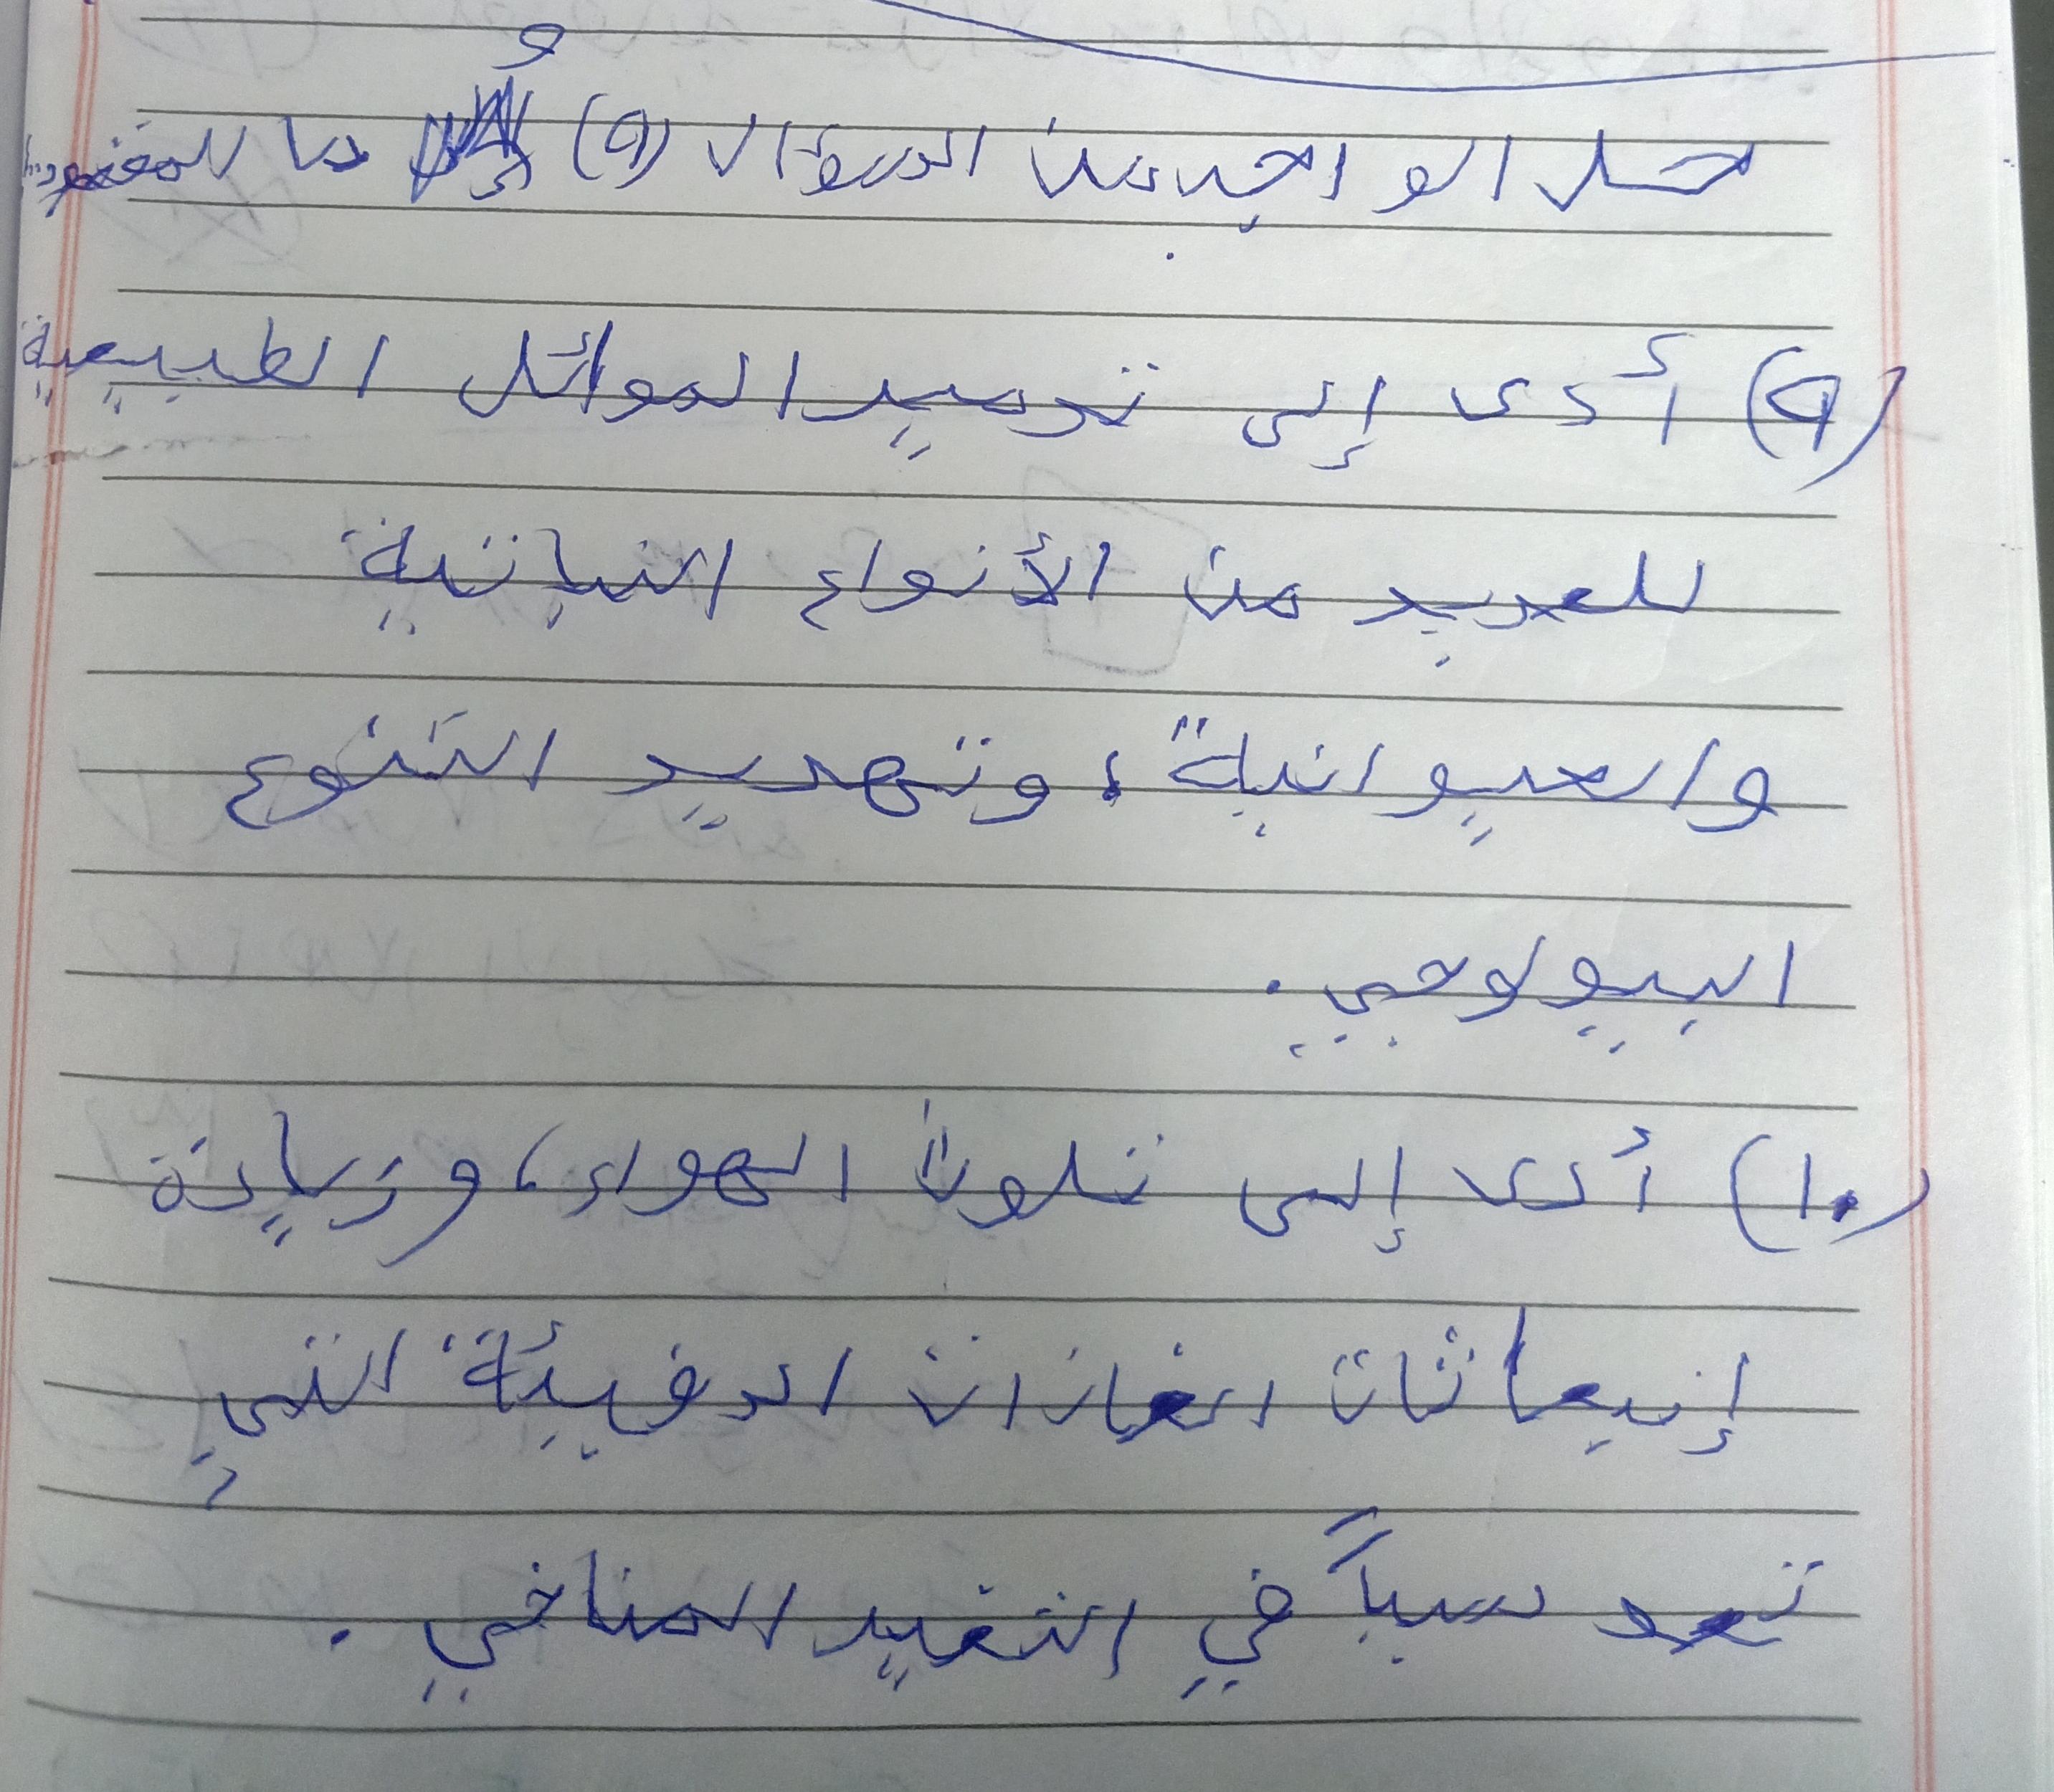 حل الواجب من السؤال (٩) ما المقصود...
(٩) أدى إلى تدمير الموائل الطبيعية
للعديد من الأنواع النباتية
والحيوانية، وتهديد التنوع
البيولوجي.
(١٠) أدى إلى تلوث الهواء، وزيادة
إنبعاثات الغازات الدفيئة التي
تعد سبباً في التغير المناخي.